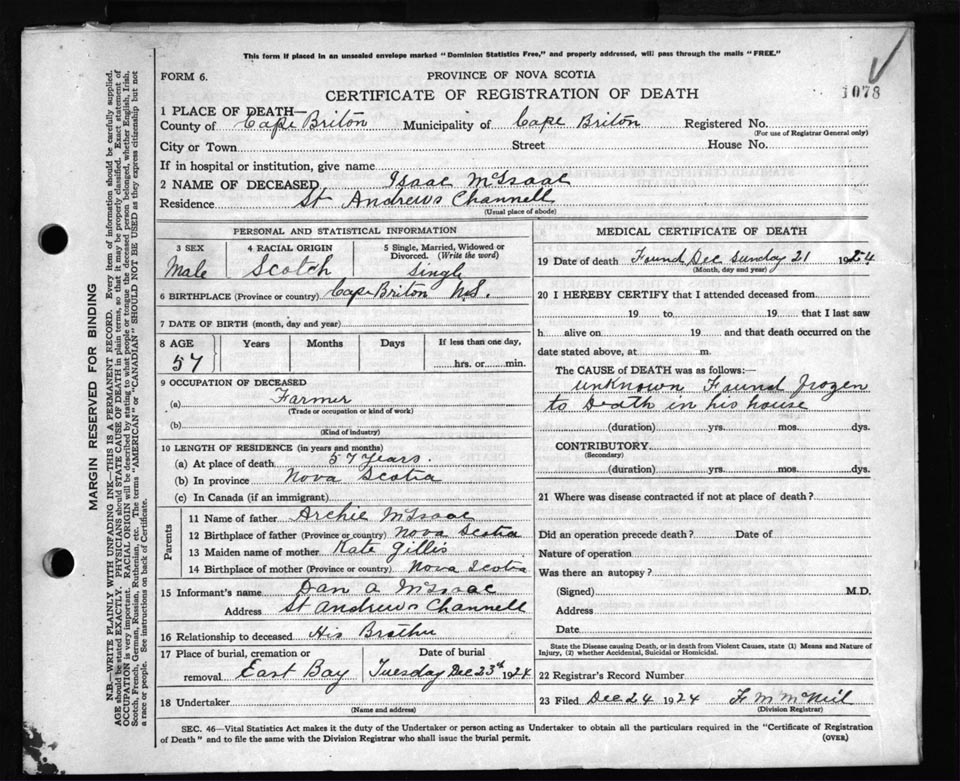 This form if placed in an unsealed envelope marked "Dominion Statistics Free," and properly addressed, will pass through the mails "FREE."
FORM 6.
PROVINCE OF NOVA SCOTIA
CERTIFICATE OF REGISTRATION OF DEATH
1078
1 PLACE OF DEATH—
County of Cape Briton Municipality of Cape Briton Registered No.
(For use of Registrar General only)
City or Town Street House No.
If in hospital or institution, give name
2 NAME OF DECEASED Isaac McIsaac
Residence St Andrews Channell
(Usual place of abode)
PERSONAL AND STATISTICAL INFORMATION
3 SEX 4 RACIAL ORIGIN 5 Single, Married, Widowed or Divorced. (Write the word)
Male Scotch Single
6 BIRTHPLACE (Province or country) Cape Briton N.S.
7 DATE OF BIRTH (month, day and year)
8 AGE Years Months Days If less than one day,
57 hrs. or min.
9 OCCUPATION OF DECEASED
(a) Farmer
(Trade or occupation or kind of work)
(b)
(Kind of industry)
10 LENGTH OF RESIDENCE (in years and months)
(a) At place of death 57 Years.
(b) In province Nova Scotia
(c) In Canada (if an immigrant)
Parents
11 Name of father Archie McIsaac
12 Birthplace of father (Province or country) Nova Scotia
13 Maiden name of mother Kate Gillis
14 Birthplace of mother (Province or country) Nova Scotia
15 Informant's name Dan A McIsaac
Address St Andrews Channell
16 Relationship to deceased His Brother
17 Place of burial, cremation or removal Date of burial
East Bay Tuesday Dec 23th 1924
18 Undertaker
(Name and address)
MEDICAL CERTIFICATE OF DEATH
19 Date of death Found Dec Sunday 21 1924
(Month, day and year)
20 I HEREBY CERTIFY that I attended deceased from
19 to 19 that I last saw
h alive on 19 and that death occurred on
date stated above, at m.
The CAUSE of DEATH was as follows:—
unknown Found frozen
to Death in his house
(duration) yrs. mos. dys.
CONTRIBUTORY
(Secondary)
(duration) yrs. mos. dys.
21 Where was disease contracted if not at place of death?
Did an operation precede death? Date of
Nature of operation
Was there an autopsy?
(Signed) M.D.
Address
Date
State the Disease causing Death, or in death from Violent Causes, state (1) Means and Nature of
Injury, (2) whether Accidental, Suicidal or Homicidal.
22 Registrar's Record Number
23 Filed Dec 24 1924 F. M McNeil
(Division Registrar)
SEC. 46—Vital Statistics Act makes it the duty of the Undertaker or person acting as Undertaker to obtain all the particulars required in the "Certificate of Registration
of Death" and to file the same with the Division Registrar who shall issue the burial permit.
(OVER)
MARGIN RESERVED FOR BINDING
N.B.—WRITE PLAINLY WITH UNFADING INK—THIS IS A PERMANENT RECORD. Every item of information should be carefully supplied.
AGE should be stated EXACTLY. PHYSICIANS should STATE CAUSE OF DEATH in plain terms, so that it may be properly classified. Exact statement of
OCCUPATION is very important. RACIAL ORIGIN will be described by stating to what people or tongue the deceased person belonged, whether English, Irish,
Scotch, French, German, Russian, Ruthenian, etc. The terms "AMERICAN" or "CANADIAN" SHOULD NOT BE USED as they express citizenship but not
a race or people. See instructions on back of Certificate.